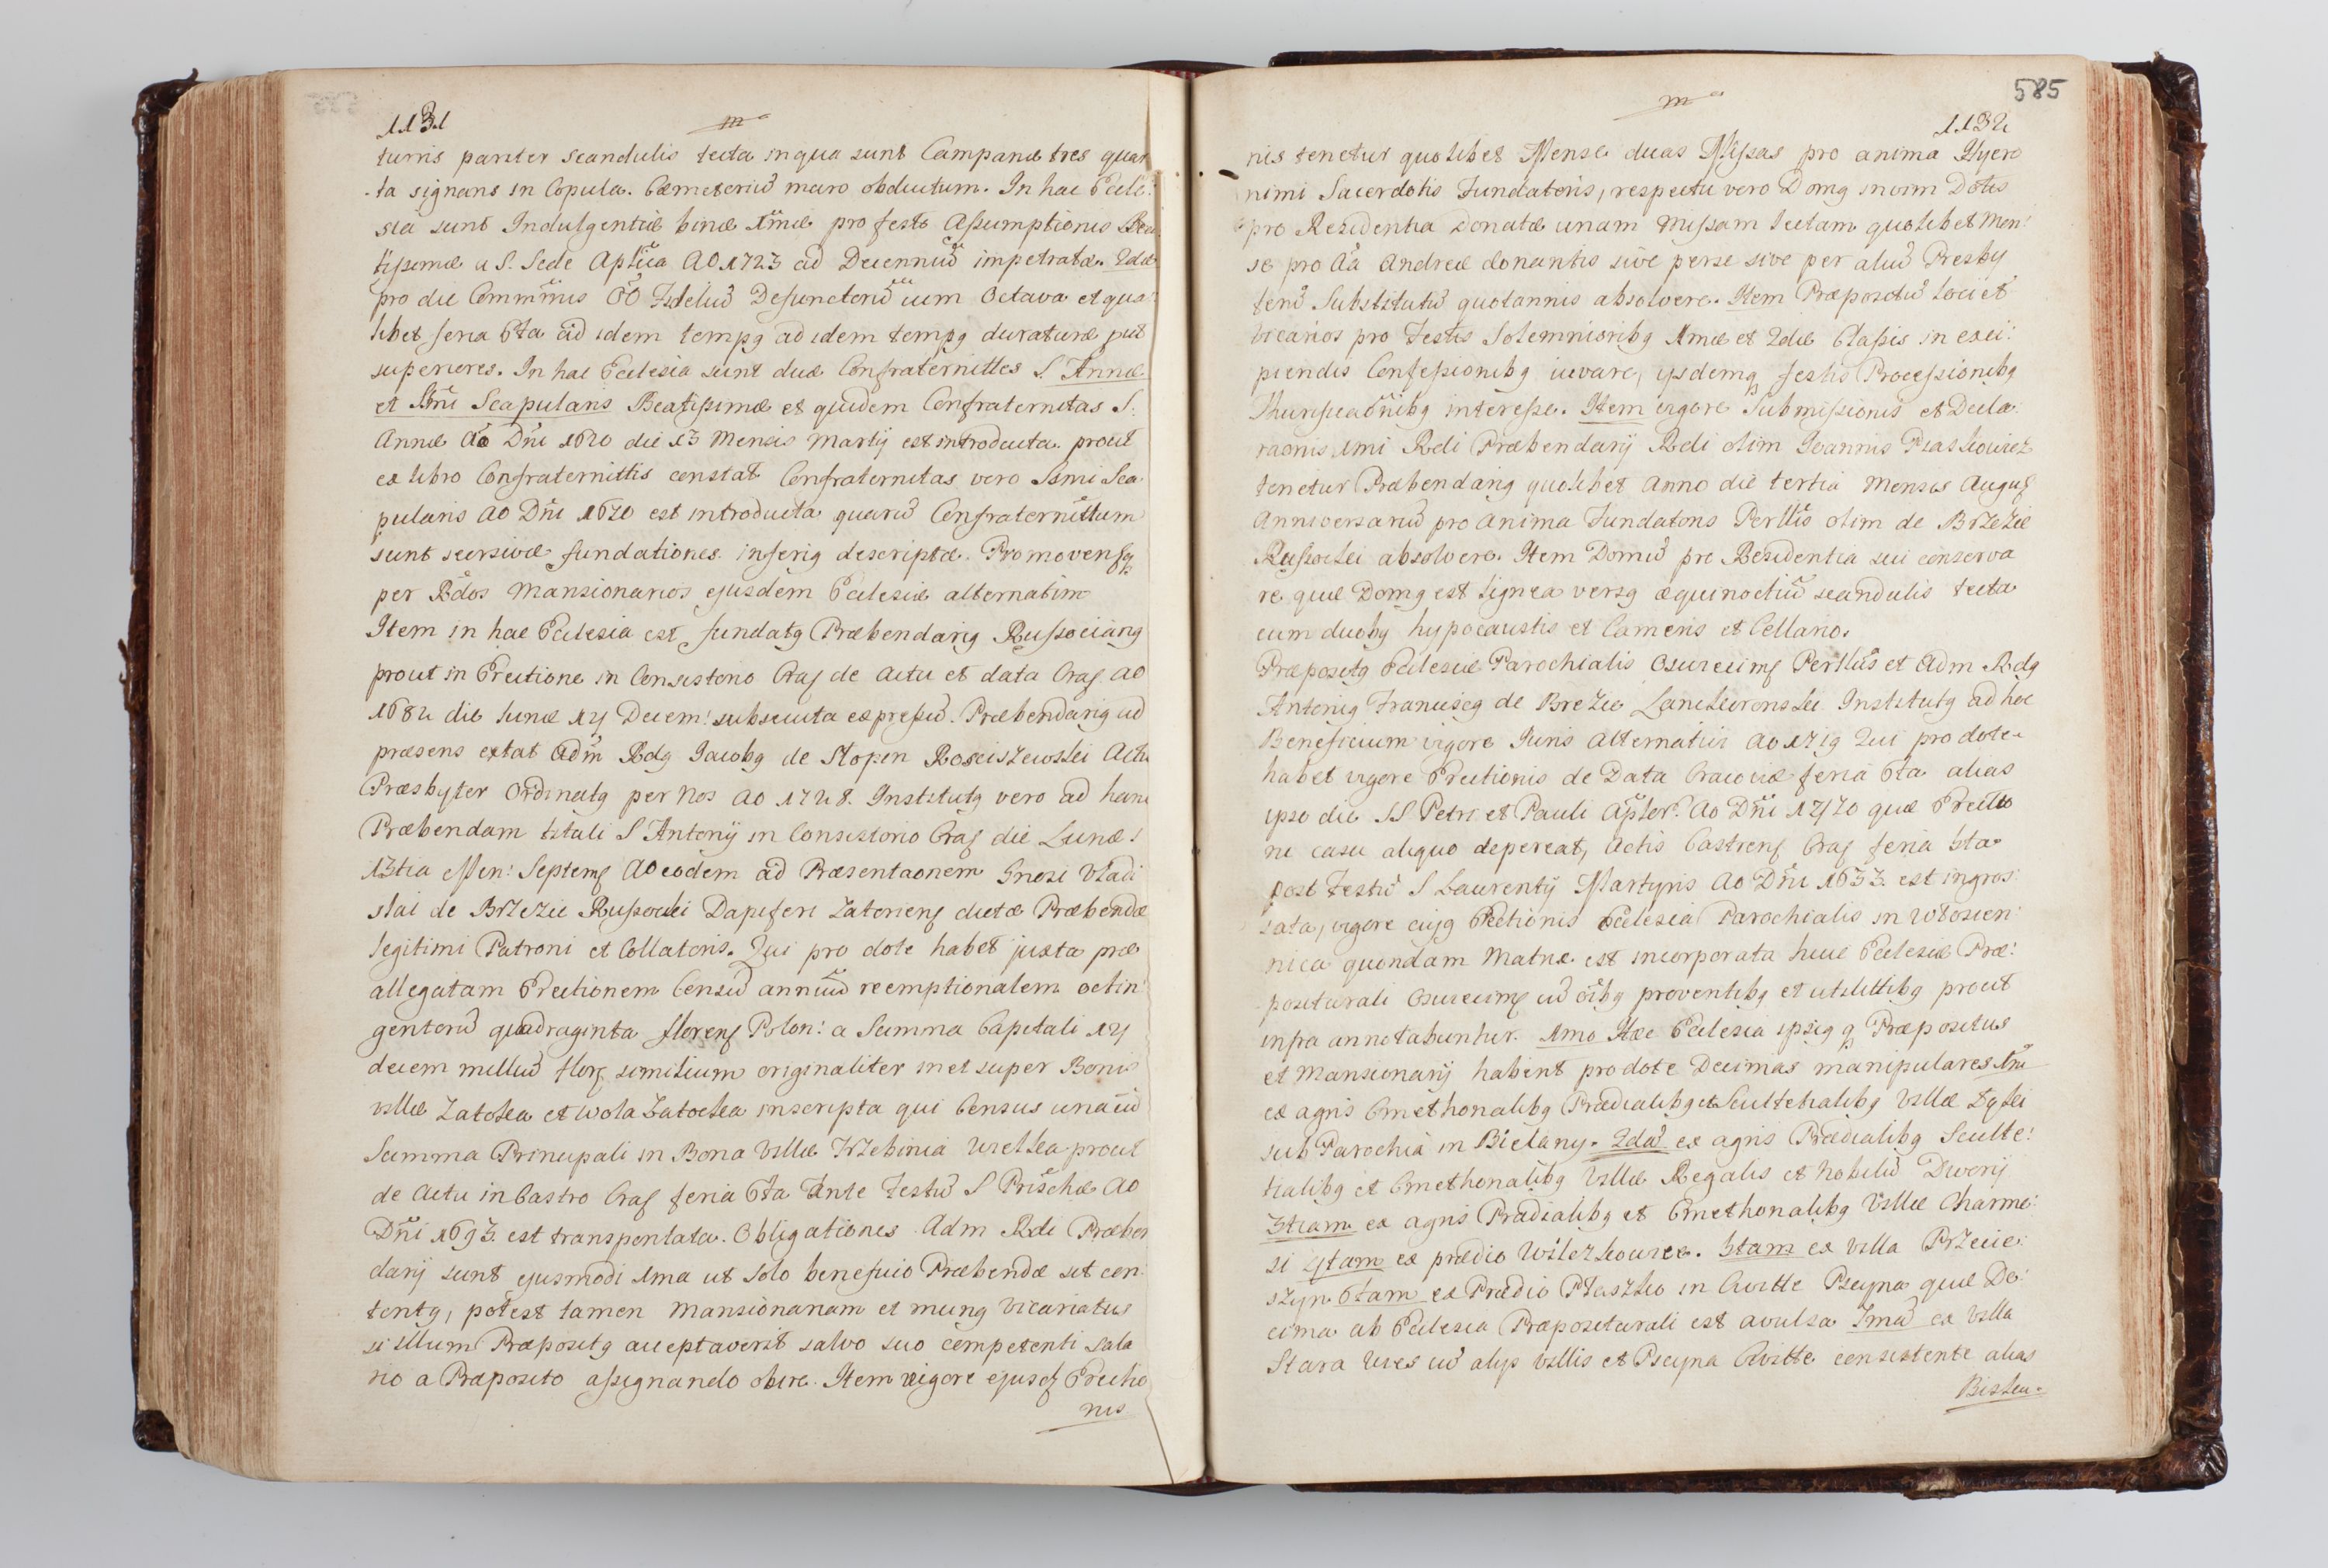 1131
m
turris pariter scandulis tecta in qua sunt Campanæ tres quar
ta signans in Copula. Cæmeteriũ muro obductum. In hac Eccle:
sia sunt Indulgentiæ binæ 1mæ pro festo Assumptionis Bea
tissimæ a S. Sede Aplica AO 1723 ad Decenniũ impetratæ. 2dæ
pro die Comm̃nis OO Fideliũ Defunctoriũ cum Octava et qua
libet feria 6ta ad idem tempg ad idem tempg duraturæ put
superiores. In hac Ecclesia sunt duæ Confraternittes S. Annæ
et Smi Scapularis Beatissimæ et quidem Confraternitas S.
Annæ Ao Dni 1620 die 13 Mensis Martij est introducta prout
ex libro Confraternittis constat Confraternitas vero Ssmi Sca
pularis AO Dni 1620 est introducta quariũ Confraternittum
sunt seorsivæ fundationes inferig descriptæ. Promovensq
per Rdos Mansionarios ejusdem Ecclesiæ alternatim
Item in hac Ecclesia est fundatg Præbendarig Russociang
prout in Erectione in Consistorio Craς de Actu et data Craς AO
1682 die Lunæ 14 Decem: subsecuta expressũ. Præbendarig ad
præsens extat Adm Rdg Jacobg de Slopen Rosciszewski Actu
Præsbyter Ordinatg per Nos AO 1728. Institutg vero ad hanc
Præbendam tituli S Antonij in Consistorio Craς die Lunæ
13tia Men: Septemς AO eodem ad Præsentaonem Gnosi Vladi
slai de Brzezie Russocki Dapiferi Zatorienς dictæ Præbendæ
legitimi Patroni et Collatoris. Qui pro dote habet juxta præ
allegatam Erectionem Censũ annuũ reemptionalem octin
gentorũ quadraginta florenς Polon: a Summa Capitali 14
decem milliũ florς similium originaliter in et super Bonis
villæ Zatoka et Wola Zatocka inscripta qui Census una cũ
Summa Principali in Bona Villæ Trzebinia Wielka prout
de Actu in Castro Craς feria 6ta Ante Festũ S Prischæ AO
Dni 1693 est transportata. Obligationes Adm Rdi Præben
darij sunt ejusmodi 1ma ut solo beneficio Præbendæ sit con
tentg, potest tamen Mansionariam et mung Vicariatus
si illum Præpositg acceptaverit salvo suo competenti Sala
rio a Præposito assignando obire. Item vigore ejusdς Erectio
nis
585
m
1132
nis tenetur quolibet Mense duas Missas pro anima Hyero
nimi Sacerdotis Fundatoris, respectu vero Domg in vim Dotis
pro Residentia Donatæ unam Missam lectam quolibet Men:
se pro Aa Andreæ donantis sive per se sive per aliũ Presby
terũ Substitutũ quotannis absolvere. Item Præpositũ loci et
Vicarios pro Festis Solemnioribg 1mæ et 2dæ Classis in exci:
piendis Confessionibg iuvare, ijsdemq festis Processionibg
Thurificaõnibg interesse. Item vigore Submissionis et Decla:
raonis 1mi Rdi Præbendarij Rdi olim Joannis Piaskowicz
tenetur Præbendarig quolibet Anno die tertia Mensis Auguς
Anniversariũ pro anima Fundatoris Perllis olim de Brzezie
Russocki absolvere. Item Domũ pro Residentia sui conserva
re quæ Domg est lignea versg æquinoctiũ scandulis tecta
cum duobg hypocaustis et Cameris et Cellario.
Præpositg Ecclesiæ Parochialis Osvecimς Perllus et Adm Rdg
Antonig Franciscg de Brezie Lanckoronski Institutg ad hoc
Beneficium vigore Juris alternativi AO 1719 Qui pro dote
habet vigore Erectionis de Data Cracoviæ feria 6ta alias
ipso die SS Petri et Pauli Aplor. AO Dni 1470 quæ Erectio
ne casu aliquo depereat, Actis Castrenς Craς feria 5ta
post Festũ S Laurentij Martyris AO Dni 1633 est ingros
sata, vigore cujg Ectionis Ecclesia Parochialis in Wlosien:
nica quondam Matrix est incorporata huic Ecclesiæ Præ:
positurali Osvecimς cũ oibg proventibg et utilittibg prout
infra annotabuntur. 1mo Hæc Ecclesia ipsig q Præpositus
et Mansionarij habent pro dote Decimas manipulares 1mã
ex agris Cmethonalibg Prædialibg et Scultetialibg Villæ Lęki
sub Parochia in Bielany. 2dã ex agris Prædialibg Sculte:
tialibg et Cmethonalibg Villæ Regalis et Nobiliũ Dwory
3tiam ex agris Prædialibg et Cmethonalibg Villæ Charme:
si 4tam ex prædio Wilczkowice. 5tam ex villa Przecie:
szyn 6tam ex Prædio Ptaszko in Civitte Pscyna quæ De:
cima ab Ecclesia Præpositurali est avulsa 7mã ex Villa
Stara Wies cũ alijs villis et Pscyna Civitte consistente alias
Bisku.